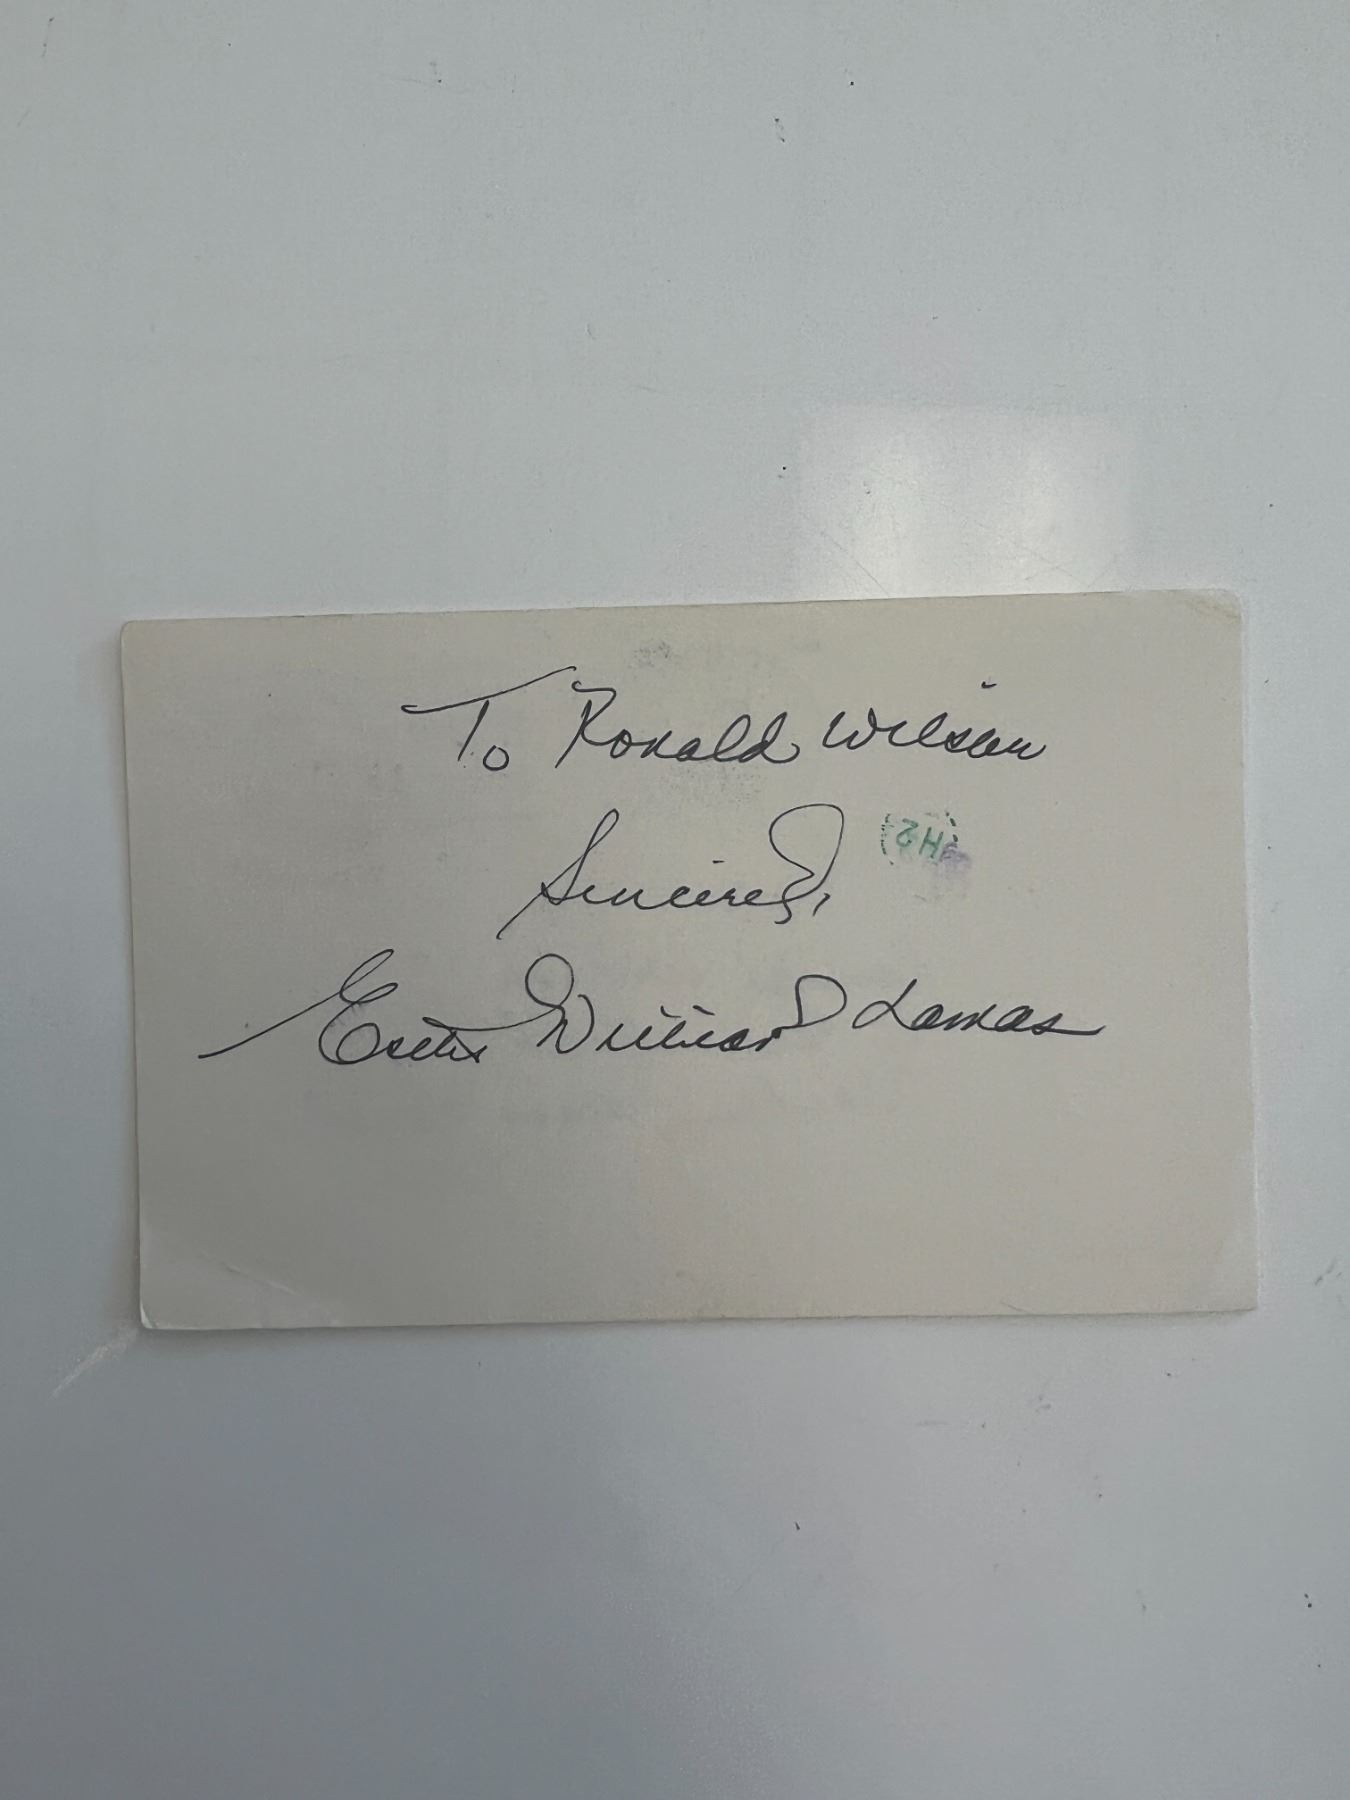 To Ronald Wilson
Sincerely,
2H
Esther Williams Lamas